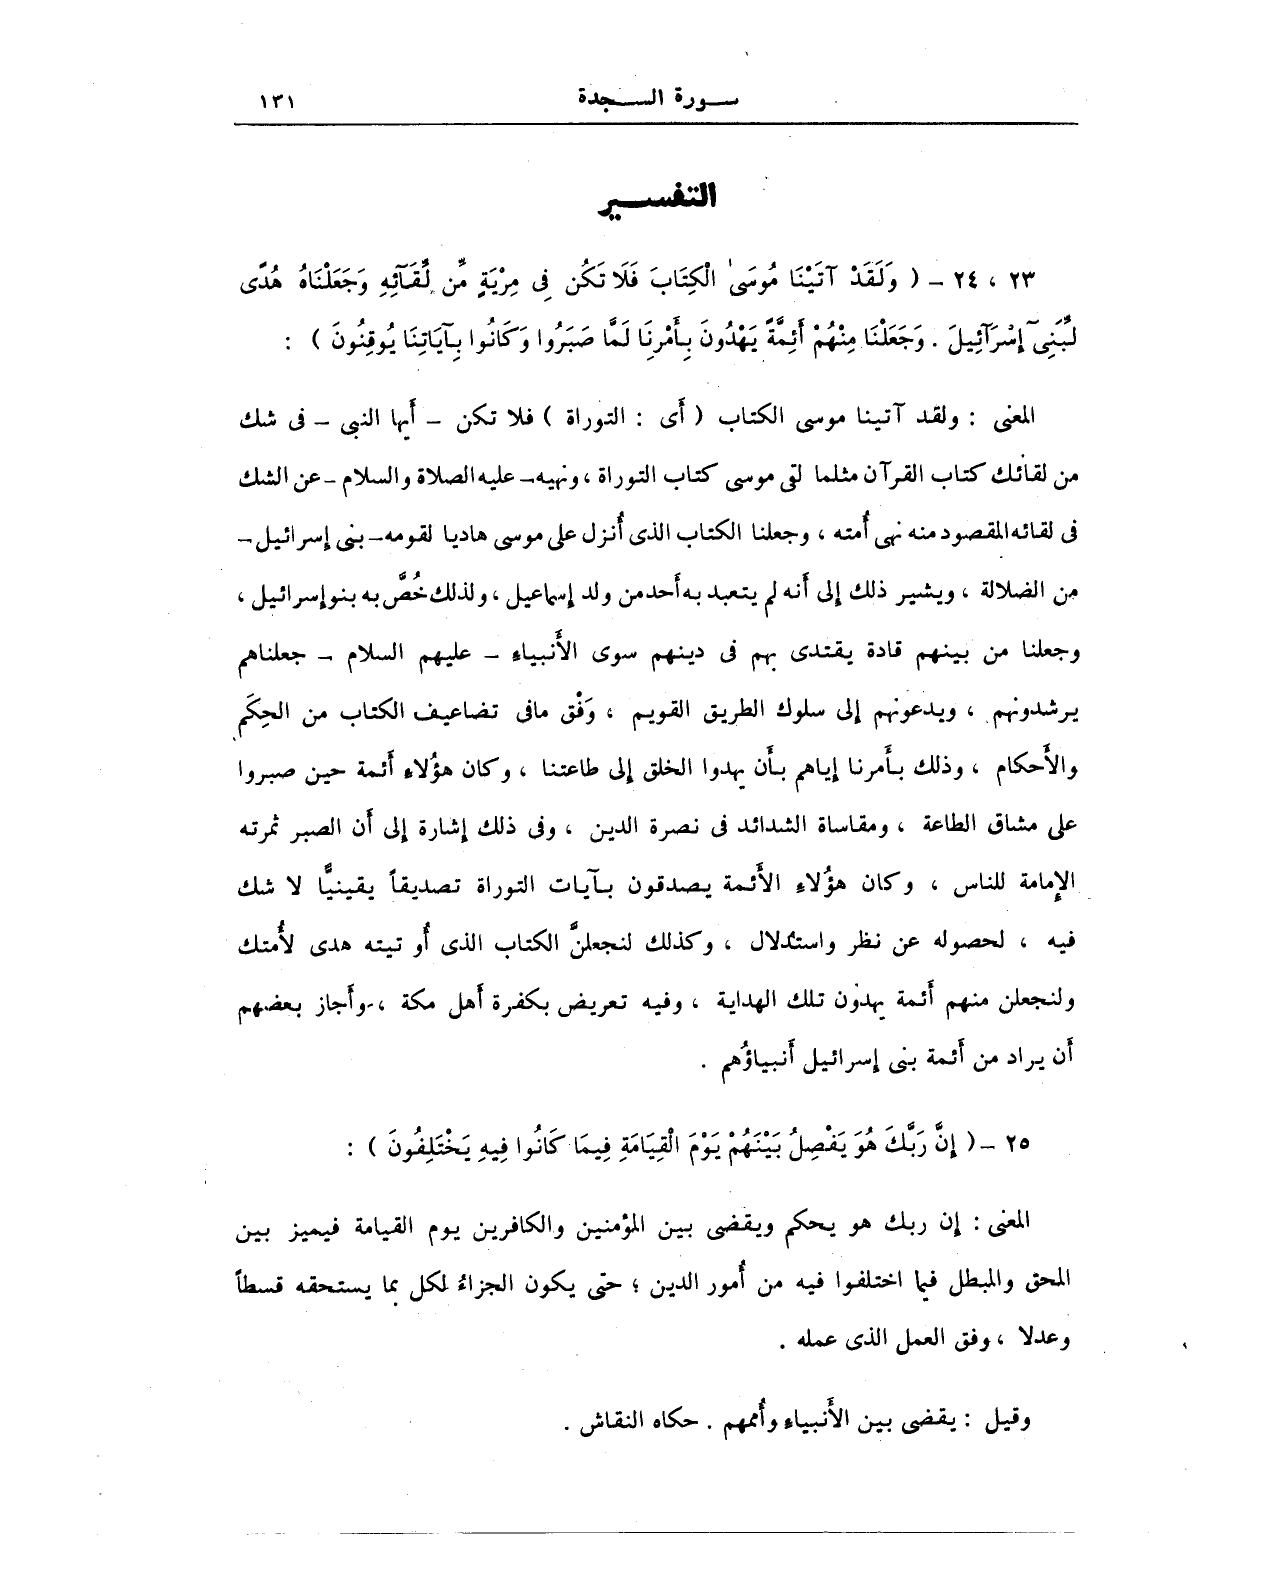 سورة السجدة ١٣١
التفسير
٢٣ ، ٢٤ - ( وَلَقَدْ آتَيْنَا مُوسَى الْكِتَابَ فَلَا تَكُن فِى مِرْيَةٍ مِّن لِّقَآئِهِ وَجَعَلْنَاهُ هُدًى
لِّبَنِىٓ إِسْرَآئِيلَ . وَجَعَلْنَا مِنْهُمْ أَئِمَّةً يَهْدُونَ بِأَمْرِنَا لَمَّا صَبَرُوا وَكَانُوا بِآيَاتِنَا يُوقِنُونَ ) :
المعنى : ولقد آتينا موسى الكتاب ( أى : التوراة ) فلا تكن - أيها النبى - فى شك
من لقائك كتاب القرآن مثلما لقى موسى كتاب التوراة ، ونهيه- عليه الصلاة والسلام -عن الشك
فى لقائه المقصود منه نهى أُمته ، وجعلنا الكتاب الذى أُنزل على موسى هاديا لقومه- بنى إسرائيل-
من الضلالة ، ويشير ذلك إلى أنه لم يتعبد به أحد من ولد إسماعيل ، ولذلك خُصَّ به بنو إسرائيل ،
وجعلنا من بينهم قادة يقتدى بهم فى دينهم سوى الأنبياء - عليهم السلام - جعلناهم
يرشدونهم ، ويدعونهم إلى سلوك الطريق القويم ، وَفْق مافى تضاعيف الكتاب من الحِكَم
والأحكام ، وذلك بأمرنا إياهم بأن يهدوا الخلق إلى طاعتنا ، وكان هؤلاء أئمة حين صبروا
على مشاق الطاعة ، ومقاساة الشدائد فى نصرة الدين ، وفى ذلك إشارة إلى أن الصبر ثمرته
الإمامة للناس ، وكان هؤلاء الأئمة يصدقون بآيات التوراة تصديقاً يقينيًّا لا شك
فيه ، لحصوله عن نظر واستدلال ، وكذلك لنجعلنَّ الكتاب الذى أُوتيته هدى لأُمتك
ولنجعلن منهم أئمة يهدون تلك الهداية ، وفيه تعريض بكفرة أهل مكة ، وأجاز بعضهم
أن يراد من أئمة بنى إسرائيل أنبياؤُهم .
٢٥ - ( إِنَّ رَبَّكَ هُوَ يَفْصِلُ بَيْنَهُمْ يَوْمَ الْقِيَامَةِ فِيمَا كَانُوا فِيهِ يَخْتَلِفُونَ ) :
المعنى : إن ربك هو يحكم ويقضى بين المؤمنين والكافرين يوم القيامة فيميز بين
المحق والمبطل فيما اختلفوا فيه من أُمور الدين ؛ حتى يكون الجزاءُ لكل بما يستحقه قسطاً
وعدلا ، وفق العمل الذى عمله .
وقيل : يقضى بين الأنبياء وأُممهم . حكاه النقاش .